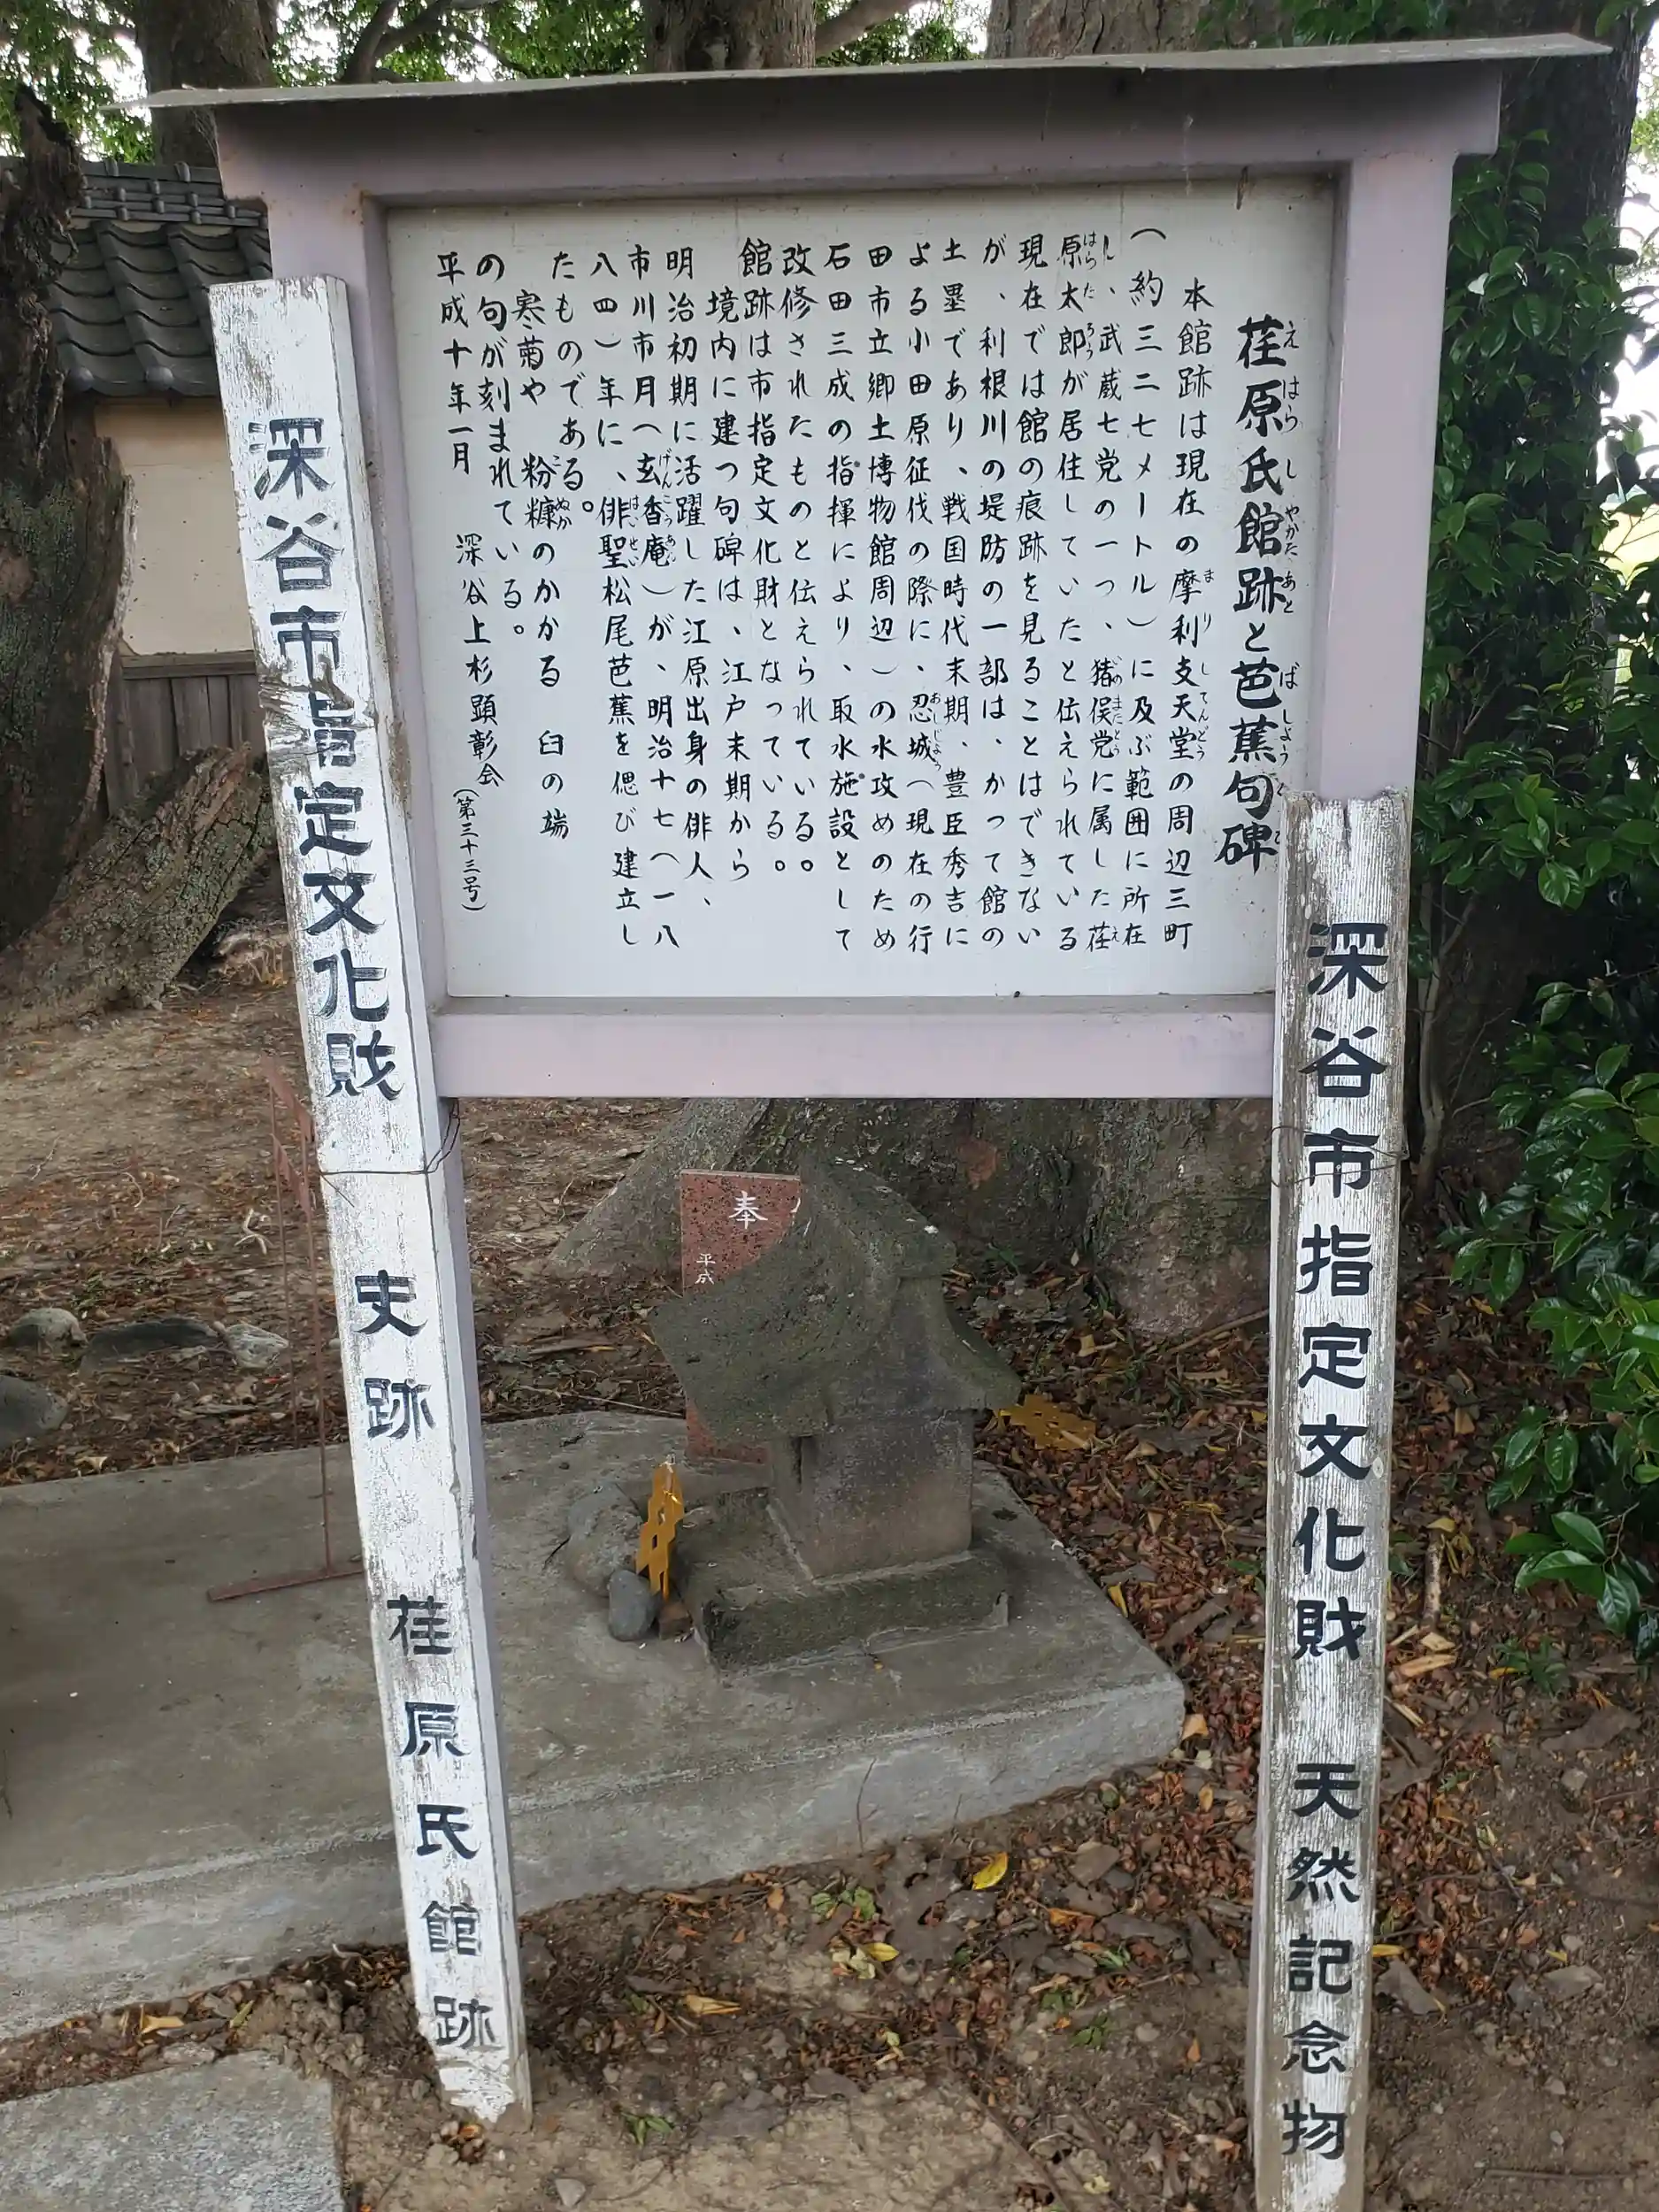 荏原氏館跡と芭蕉句碑
本館跡は現在の摩利支天堂の周辺三町
(約三二七メートル)に及ぶ範囲に所在
し、武蔵七党の一つ、猪俣党に属した荏
原太郎が居住していたと伝えられている
現在では館の痕跡を見ることはできない
が、利根川の堤防の一部は、かつて館の
土塁であり、戦国時代末期、豊臣秀吉に
よる小田原征伐の際に、忍城(現在の行
田市立郷土博物館周辺)の水攻めのため
石田三成の指揮により、取水施設として
改修されたものと伝えられている。
館跡は市指定文化財となっている。
境内に建つ句碑は、江戸末期から
明治初期に活躍した江原出身の俳人、
市川市月(玄香庵)が、明治十七(一八
八四)年に、俳聖松尾芭蕉を偲び建立し
たものである。
寒菊や 粉糠のかかる 臼の端
の句が刻まれている。
平成十年一月 深谷上杉顕彰会
(第三十三号)
深谷市指定文化財 天然記念物
深谷市指定文化財 史跡 荏原氏館跡
奉
平成